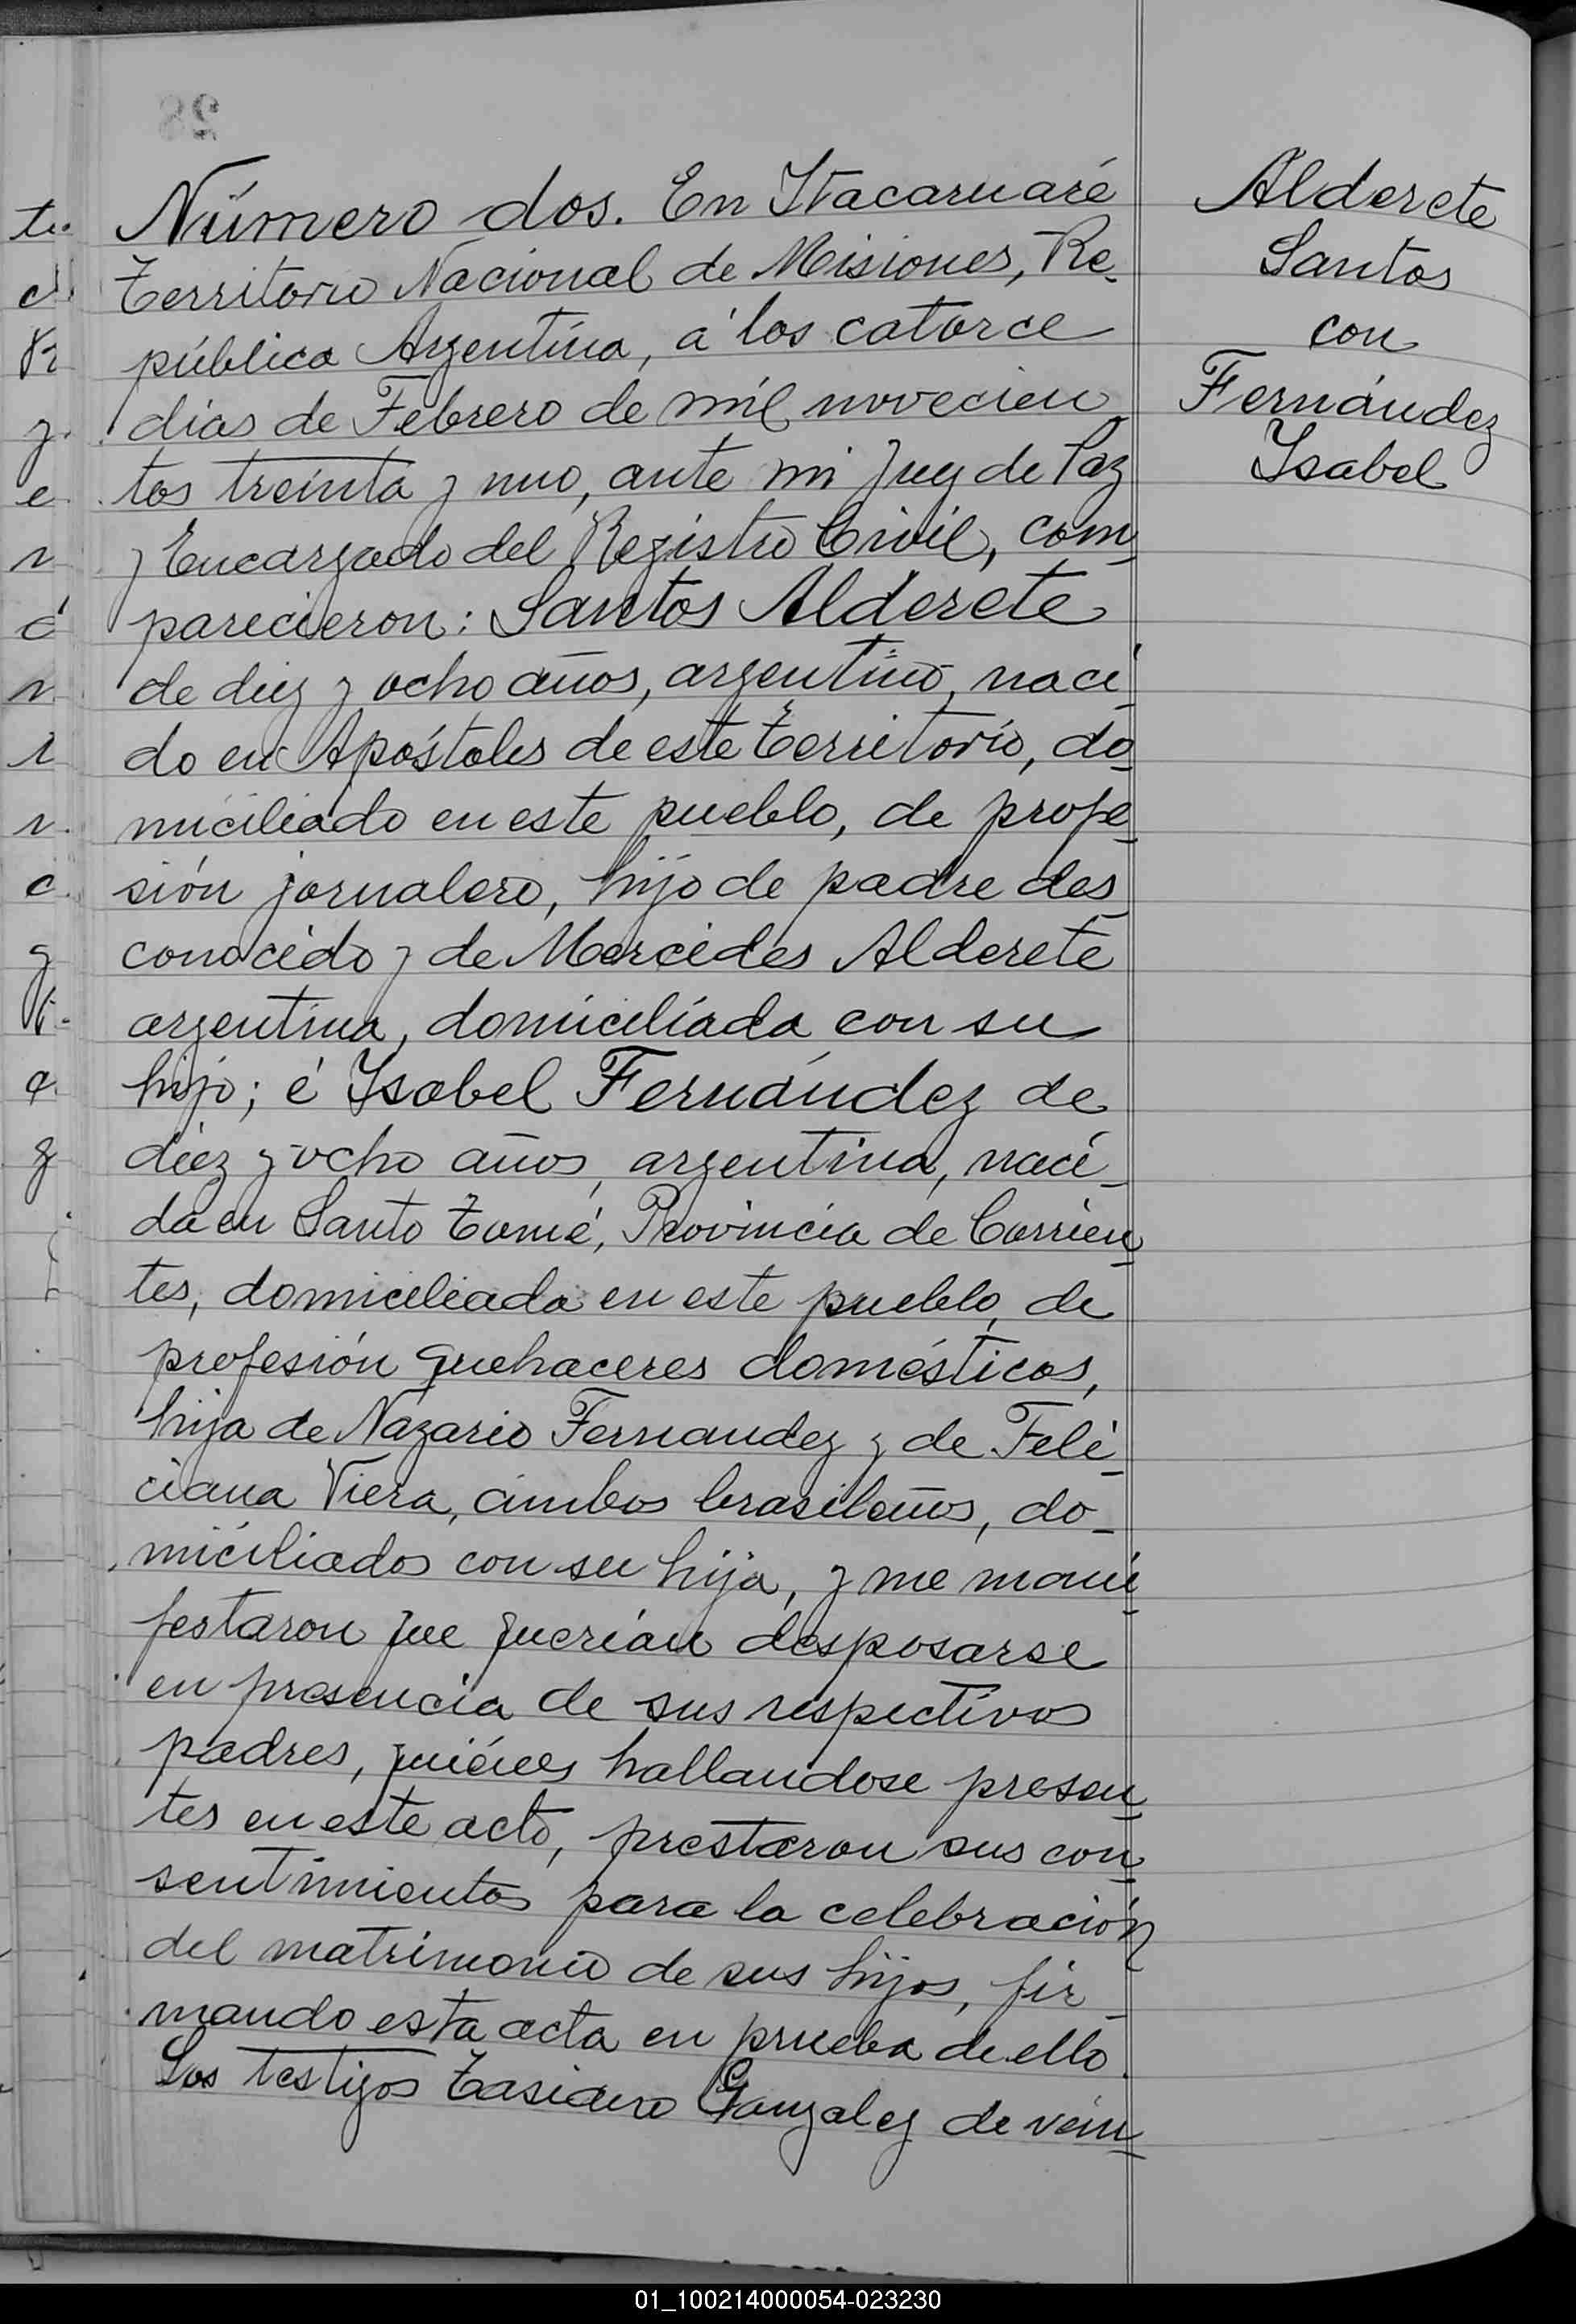 Número dos. En Itacaruaré
Territorio Nacional de Misiones, Re-
pública Argentina, á los catorce
dias de Febrero de mil novecien-
tos treinta y uno, ante mi Juez de Paz
y Encargado del Registro Civil, com-
parecieron: Santos Alderete
de diez y ocho años, argentino, naci-
do en Apóstoles de este Territorio, do-
miciliado en este pueblo, de profe-
sión jornalero, hijo de padre des-
conocido y de Mercedes Alderete
argentina, domiciliada con su
hijo; é Isabel Fernández de
diez y ocho años, argentina, naci-
da en Santo Tomé, Provincia de Corrien-
tes, domiciliada en este pueblo, de
profesión quehaceres domésticos,
hija de Nazario Fernandez y de Feli-
ciana Viera, ámbos brasileños, do-
miciliados con su hija, y me mani-
festaron que querían desposarse
en presencia de sus respectivos
padres, quiénes hallandose presen-
tes en este acto, prestaron sus con-
sentimientos para la celebración
del matrimonio de sus hijos, fir-
mando esta acta en prueba de ello.
Los testigos Gonzalez de vein-
Alderete
Santos
con
Fernández
Isabel
28
01_100214000054-023230